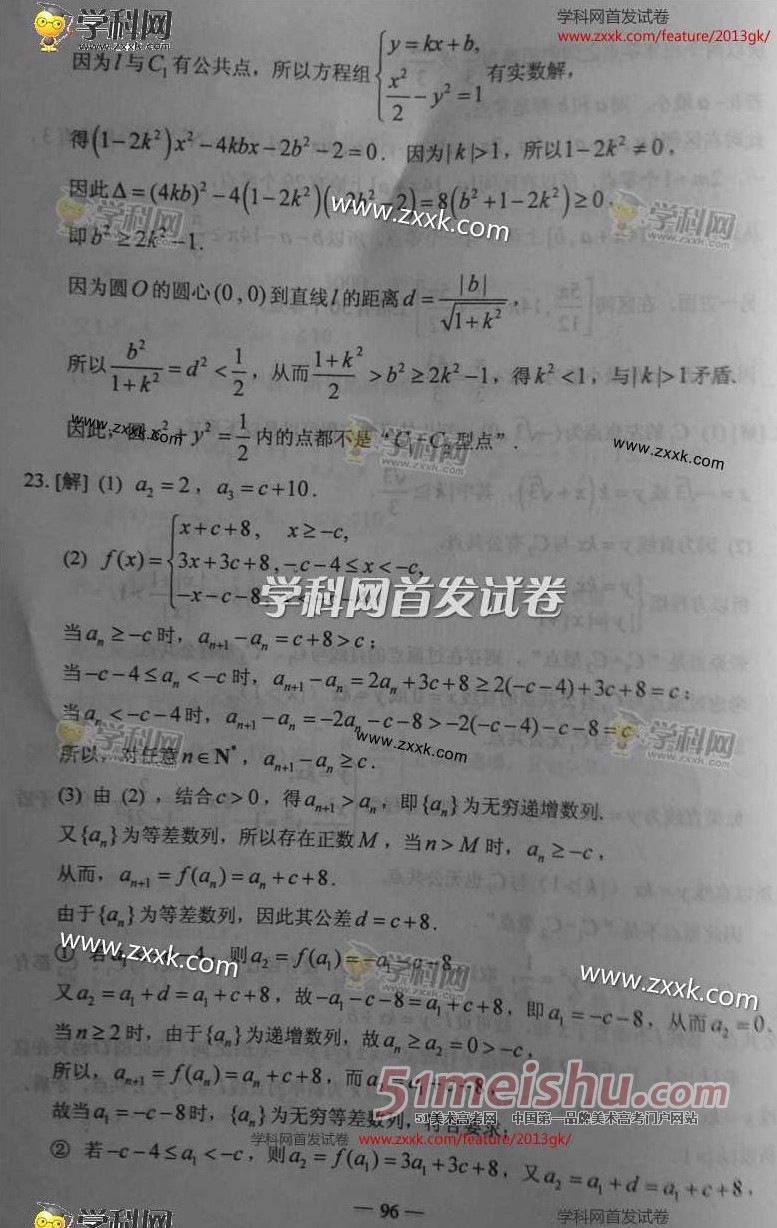 学科网
学科网首发试卷
www.zxxk.com/feature/2013gk/
因为l与C₁有公共点，所以方程组{y=kx+b, x²/2−y²=1 有实数解，
得(1−2k²)x²−4kbx−2b²−2=0. 因为|k|>1，所以1−2k²≠0，
因此Δ=(4kb)²−4(1−2k²)(−2b²−2)=8(b²+1−2k²)≥0，
www.zxxk.com
即b²≥2k²−1.
因为圆O的圆心(0,0)到直线l的距离d=|b|/√(1+k²)，
所以b²/(1+k²)=d²<1/2，从而(1+k²)/2>b²≥2k²−1，得k²<1，与|k|>1矛盾.
因此，圆x²+y²=1/2内的点都不是“C₁−C₂型点”.
www.zxxk.com
www.zxxk.com
23. [解] (1) a₂=2，a₃=c+10.
(2) f(x)={x+c+8, x≥−c,
3x+3c+8, −c−4≤x<−c,
−x−c−8,
学科网首发试卷
当aₙ≥−c时，aₙ₊₁−aₙ=c+8>c；
当−c−4≤aₙ<−c时，aₙ₊₁−aₙ=2aₙ+3c+8≥2(−c−4)+3c+8=c；
当aₙ<−c−4时，aₙ₊₁−aₙ=−2aₙ−c−8>−2(−c−4)−c−8=c
www.zxxk.com
所以，对任意n∈N*，aₙ₊₁−aₙ≥c.
(3) 由 (2) ，结合c>0，得aₙ₊₁>aₙ，即{aₙ}为无穷递增数列.
又{aₙ}为等差数列，所以存在正数M，当n>M时，aₙ≥−c，
从而，aₙ₊₁=f(aₙ)=aₙ+c+8.
由于{aₙ}为等差数列，因此其公差d=c+8.
① 若a₁ −4，则a₂=f(a₁)=−a₁−c−8
www.zxxk.com
www.zxxk.com
又a₂=a₁+d=a₁+c+8，故−a₁−c−8=a₁+c+8，即a₁=−c−8，从而a₂=0.
当n≥2时，由于{aₙ}为递增数列，故aₙ≥a₂=0>−c，
所以，aₙ₊₁=f(aₙ)=aₙ+c+8，而a₁=
51meishu.com
51美术高考网 中国第一品牌美术高考门户网站
故当a₁=−c−8时，{aₙ}为无穷等差数列，符合要求；
学科网首发试卷 www.zxxk.com/feature/2013gk/
② 若−c−4≤a₁<−c，则a₂=f(a₁)=3a₁+3c+8，又a₂=a₁+d=a₁+c+8，
— 96 —
学科网
学科网首发试卷